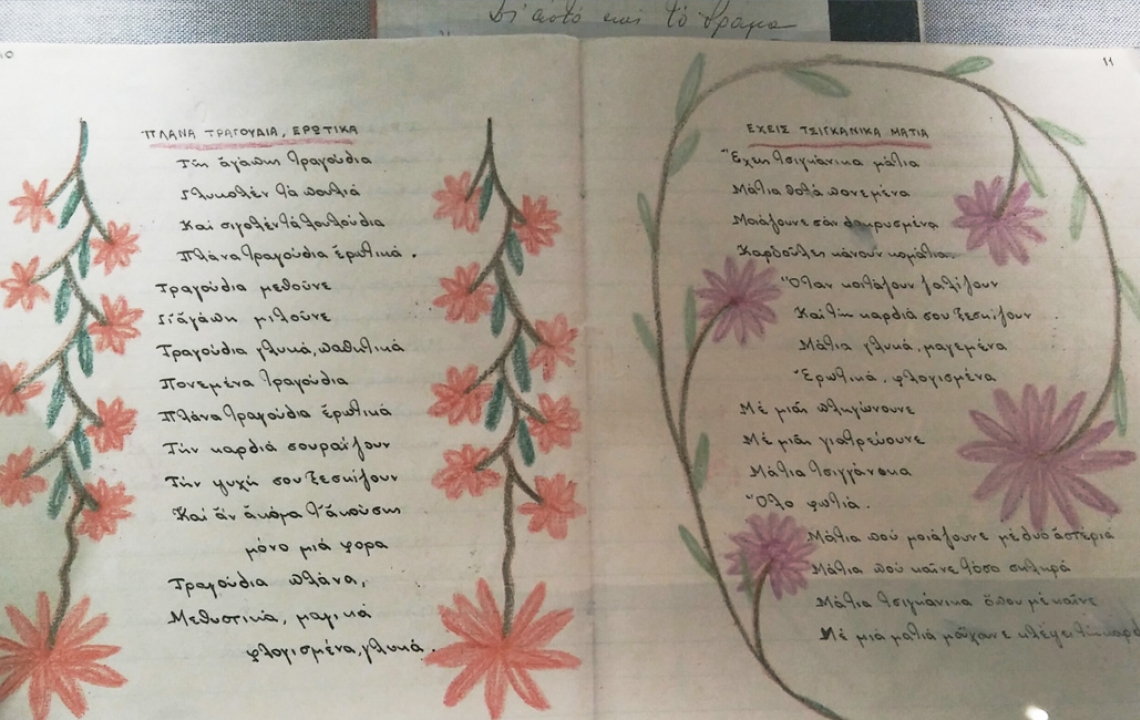 Δι' αὐτό καί τό δράμα
10
ΠΛΑΝΑ ΤΡΑΓΟΥΔΙΑ, ΕΡΩΤΙΚΑ
Τῆς ἀγάπης τραγούδια
Γλυκολέν τά πουλιά
Καί σιγολέν τά λουλούδια
Πλάνα τραγούδια ἐρωτικά.
Τραγούδια μεθοῦνε
Γι' ἀγάπη μιλοῦνε
Τραγούδια γλυκά, παθητικά
Πονεμένα τραγούδια
Πλάνα τραγούδια ἐρωτικά
Τήν καρδιά σου ραΐζουν
Τήν ψυχή σου ξεσκίζουν
Καί ἄν ἀκόμα τ' ἀκούσης
μόνο μιά φορα
Τραγούδια πλάνα,
Μεθυστικά, μαγικά
φλογισμένα, γλυκά.
11
ΕΧΕΙΣ ΤΣΙΓΚΑΝΙΚΑ ΜΑΤΙΑ
Ἔχεις τσιγκάνικα μάτια
Μάτια θολά πονεμένα
Μοιάζουνε σάν δακρυσμένα
Καρδοῦλες κάνουν κομάτια
Ὅταν κοιτάζουν ζαλίζουν
Καί τήν καρδιά σου ξεσκίζουν
Μάτια γλυκά, μαγεμένα
Ἐρωτικά, φλογισμένα
Μέ μιᾶς πληγώνουνε
Μέ μιᾶς γιατρεύουνε
Μάτια τσιγγάνικα
Ὅλο φωτιά.
Μάτια πού μοιάζουνε μέ δυό ἀστέρια
Μάτια πού καῖνε τόσο σκληρά
Μάτια τσιγκάνικα ὅπου μέ καῖνε
Μέ μιά ματιά μοὔχανε κλέψει τήν καρδ